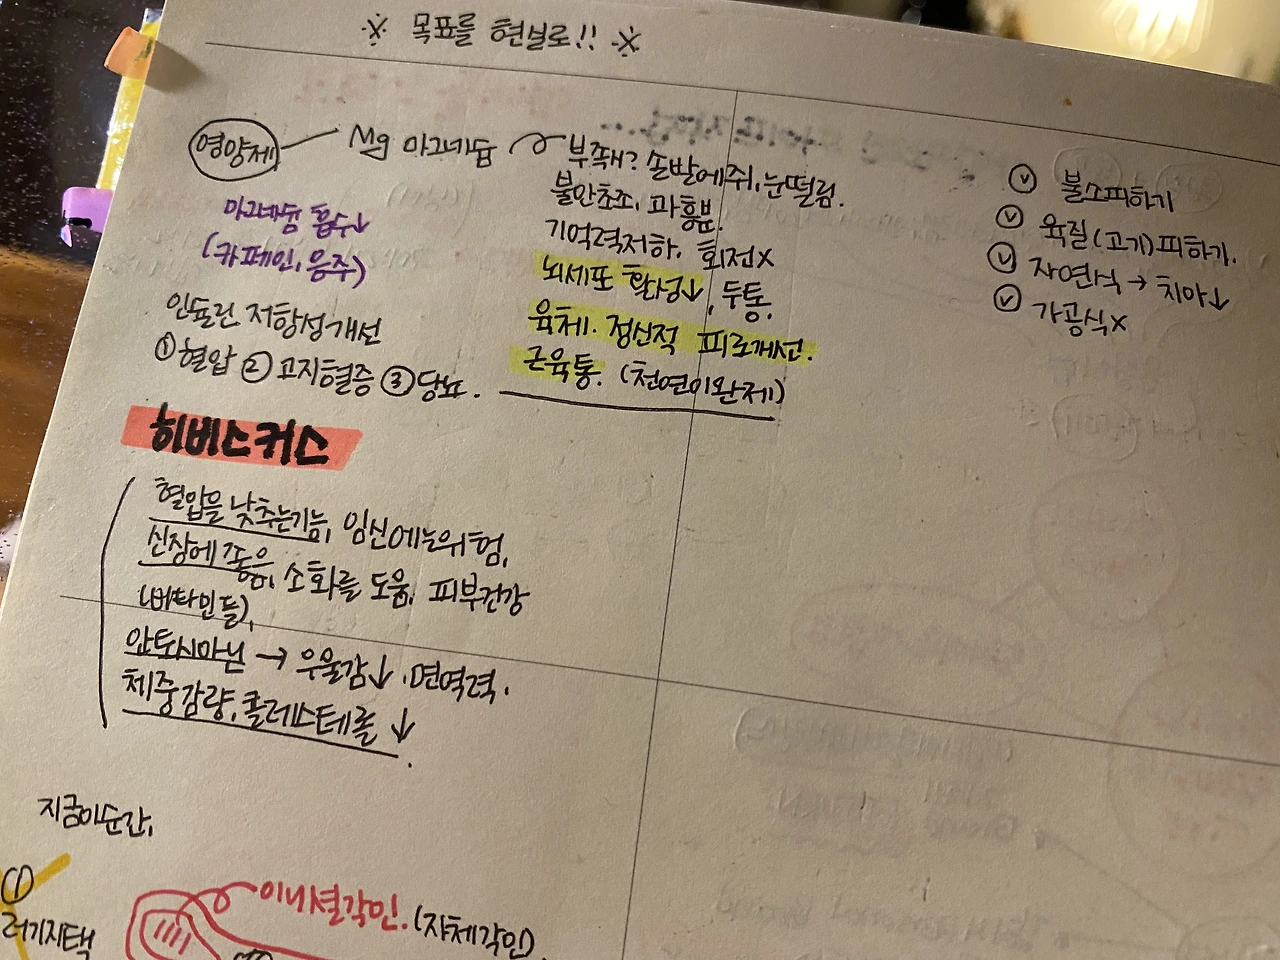 ※ 목표를 현실로!! ※
영양제 — Mg 마그네슘
부족해? 손발에 쥐, 눈떨림.
불안초조, 과흥분.
기억력저하, 회전x
뇌세포 활성↓, 두통.
육체. 정신적 피로개선.
근육통. (천연이완제)
마그네슘 흡수↓
(카페인, 음주)
인슐린 저항성개선
①혈압 ②고지혈증 ③당뇨.
ⓥ 불소피하기
ⓥ 육질(고기)피하기.
ⓥ 자연식 → 치아↓
ⓥ 가공식x
히비스커스
혈압을 낮추는기능, 임신에는위험,
신장에 좋음, 소화를 도움, 피부건강
(비타민들),
안토시아닌 → 우울감↓. 면역력.
체중감량, 콜레스테롤 ↓.
지금이순간,
①
러기지택
이니셜각인. (자체각인)